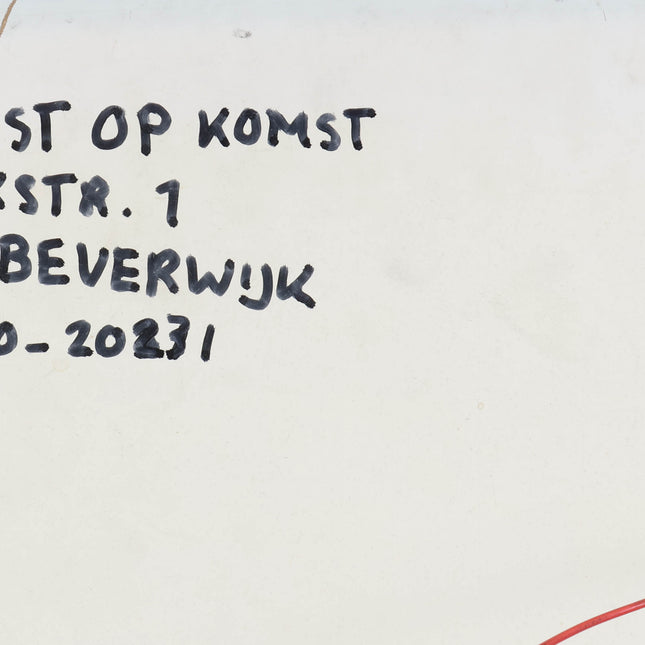 ST OP KOMST
STR. 1
BEVERWIJK
0-20231